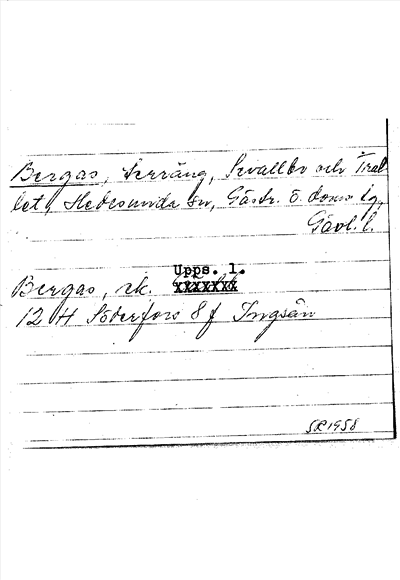 Bergas, terräng, Sevallbo och Tral-
let, Hedesunda sn, Gästr. ö. doms tg,
Gävl. l.
Upps. l.
Bergas, ek. xxxxxxx
12 H Söderfors 8 f Ingsån
SR 1958